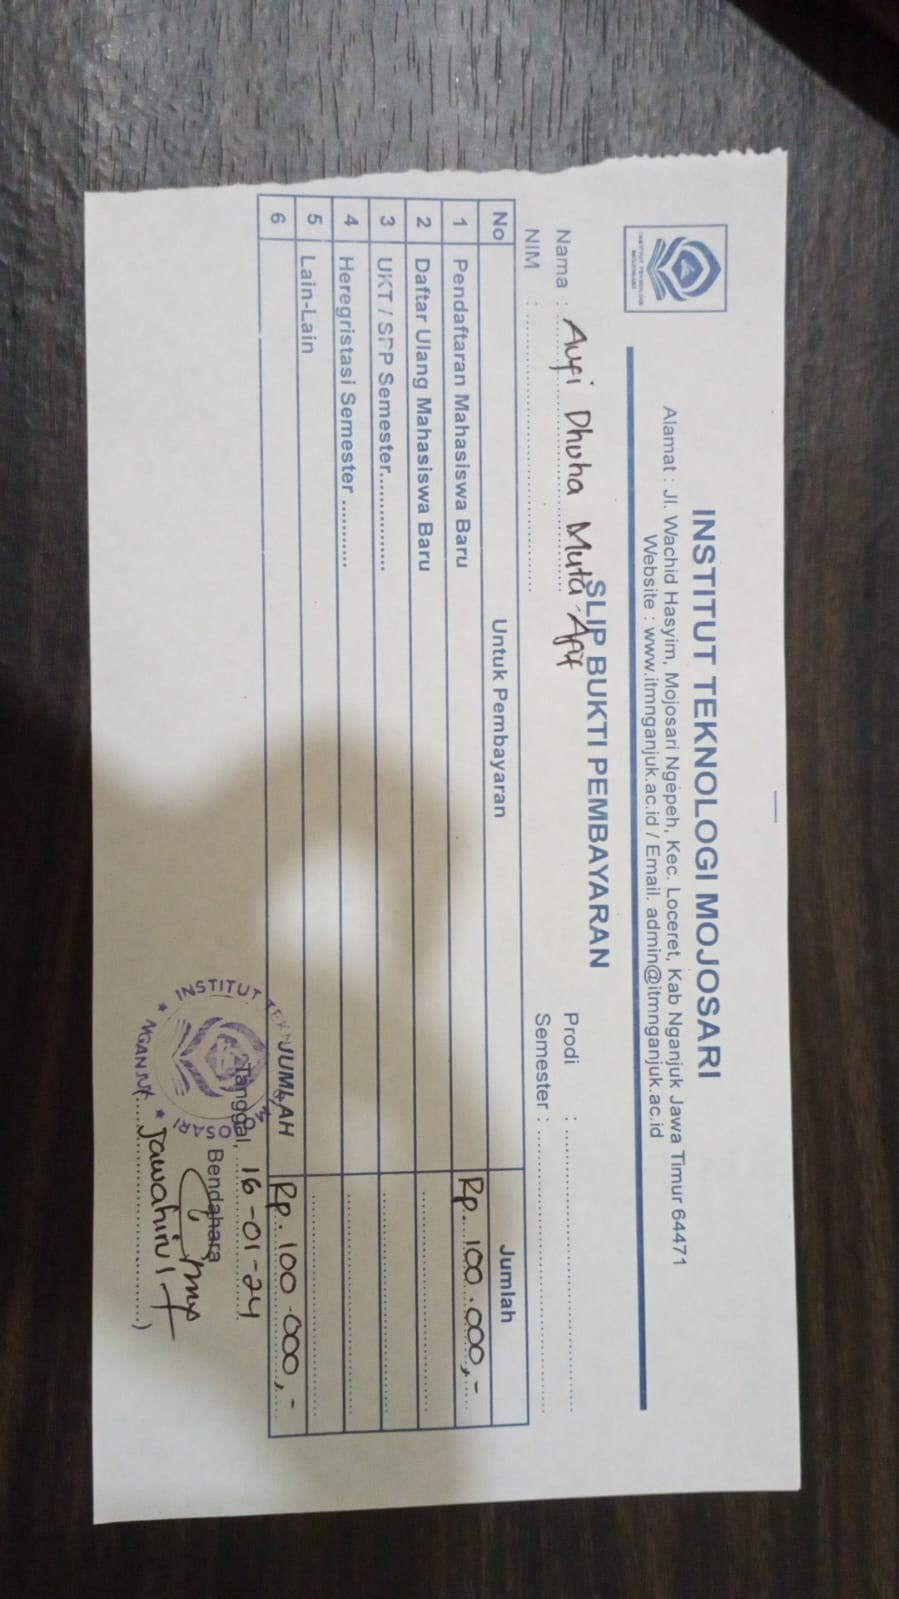 INSTITUT TEKNOLOGI MOJOSARI
Alamat : Jl. Wachid Hasyim, Mojosari Ngepeh, Kec. Loceret, Kab Nganjuk Jawa Timur 64471
Website : www.itmnganjuk.ac.id / Email. admin@itmnganjuk.ac.id
INSTITUT TEKNOLOGI
MOJOSARI
SLIP BUKTI PEMBAYARAN
Nama : Aufi Dhuha Muta-Afif Prodi :
NIM : Semester :
No Untuk Pembayaran Jumlah
1 Pendaftaran Mahasiswa Baru Rp. 100.000,-
2 Daftar Ulang Mahasiswa Baru
3 UKT / SPP Semester..............
4 Heregristasi Semester ............
5 Lain-Lain
6 JUMLAH Rp. 100.000,-
Tanggal, 16-01-24
Bendahara
INSTITUT OSARI NGANJUK